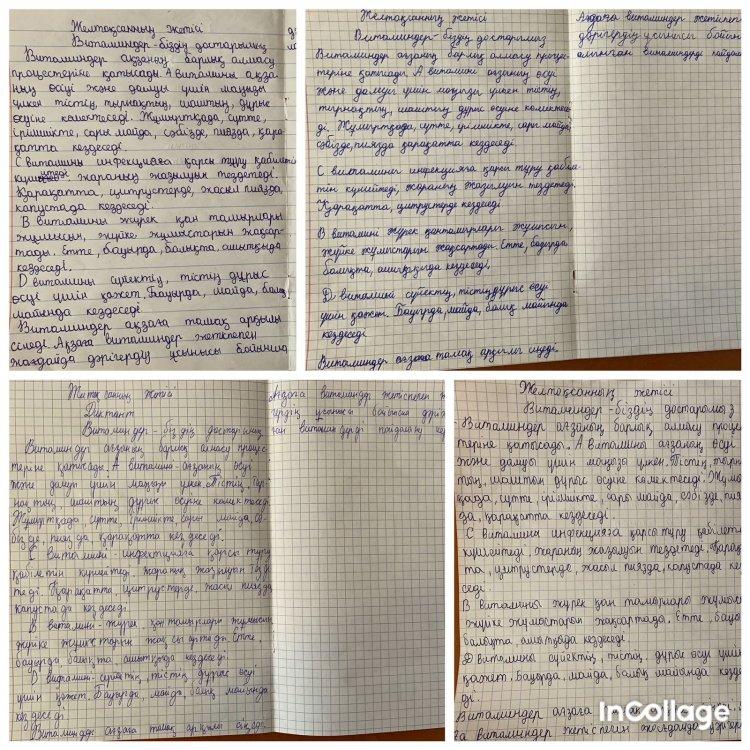 Желтоқсанның жетісі
Витаминдер - біздің достарымыз
Витаминдер ағзаның барлық алмасу
процестеріне қатысады. А витамины ағза-
ның өсуі және дамуы үшін маңызды
үлкен тістің, тырнақтың, шаштың, дұрыс
өсуіне көмектеседі. Жұмыртқада, сүтте,
ірімшікте, сары майда, сәбізде, пиязда, қара-
қатта кездеседі.
С витамины инфекцияға қарсы тұру қабілетін
күшейтеді жараның жазылуын тездетеді.
Қарақатта, цитрустерде, жасыл пиязда,
капустада кездеседі.
В витамины жүрек қан тамырлары
жұмысын, жүйке жұмыстарын жақсар-
тады. Етте, бауырда, балықта, ашытқыда
кездеседі.
D витамины сүйектің, тістің дұрыс
өсуі үшін қажет. Бауырда, майда, балық
майында кездеседі
Витаминдер ағзаға тамақ арқылы
сіңеді. Ағзаға витаминдер жетіспеген
жағдайда дәрігердің ұсынысы бойынша
Желтоқсанның жетісі
Витаминдер - біздің достарымыз
Витаминдер ағзаның барлық алмасу проце-
теріне қатысады. А витамині ағзаның өсуі
және дамуы үшін маңызды үлкен тістің,
тырнақтың, шаштың дұрыс өсуіне көмектесе
ді. Жұмыртқада, сүтте, ірімшікте, сары майда
сәбізде, пиязда қарақатта кездеседі
С витамины инфекцияға қарсы тұру қабіле-
тін күшейтеді, жараның жазылуын тездетеді.
Қарақатта, цитрустерде кездеседі
В витамині жүрек қантамырлары жұмысын,
жүйке жұмыстарын жақсартады. Етте, бауырда
балықта, ашытқыда кездеседі,
D витамині сүйектің, тістің дұрыс өсуі
үшін қажет. Бауырда, майда, балық майында
кездеседі
Витаминдер ағзаға тамақ арқылы сіңеді.
Ағзаға витаминдер жетіспеген
дәрігердің ұсынысы бойын
алынған витаминдерді пайдалан
жетісі
Диктант
Витаминдер - біздің достарымыз
Витаминдер ағзаның барлық алмасу процес-
теріне қатысады. А витамині - ағзаның өсуі
және дамуы үшін маңызы үлкен. Тістің, тыр-
нақтың, шаштың дұрыс өсуіне көмектеседі
Жұмыртқада, сүтте, ірімшікте, сары майда, сә-
бізде, пиязда қарақатта кездеседі.
С витамині - инфекцияға қарсы тұру
қабілетін күшейтеді. жараның жазылуын тезде
теді. Қарақатта, цитрустерде, жасыл пиязда
капустада кездеседі.
В витамині - жүрек қан тамырлары жұмысын
жүйке жұмыстарын жақсартады. Етте,
бауырда балықта, ашытқыда кездеседі.
D витамин - сүйектің, тістің дұрыс өсуі
үшін қажет. Бауырда, майда, балық майында
кездеседі
Витаминдер ағзаға тамақ арқылы сіңеді.
Ағзаға витаминдер жетіспеген
ұсынысы бойынша
витаминдерді пайдалану
Желтоқсанның жетісі
Витаминдер - біздің достарымыз
Витаминдер ағзаның барлық алмасу проце
теріне қатысады. А витамины ағзаның өсуі
және дамуы үшін маңызы үлкен. Тістің, тырна
тың, шаштың дұрыс өсуіне көмектеседі. Жұмы
қада, сүтте, ірімшікте, сары майда, сәбізде, пия
да, қарақатта кездеседі.
С витамина инфекцияға қарсы тұру қабілеті
күшейтеді. жараның жазылуын тездетеді. Қарақ
та, цитрустерде, жасыл пиязда, капустада кез
седі.
В витамины жүрек қан тамырлары жұмыс
жүйке жұмыстарын жақсартады. Етте, бауы
балықта, ашытқыда кездеседі.
D витамины сүйектің, тістің, дұрыс өсуі үшін
қажет. Бауырда, майда, балық майында кезде
ді.
Витаминдер ағзаға
ға витаминдер жетіспеген жағдайда дәріге
InCollage